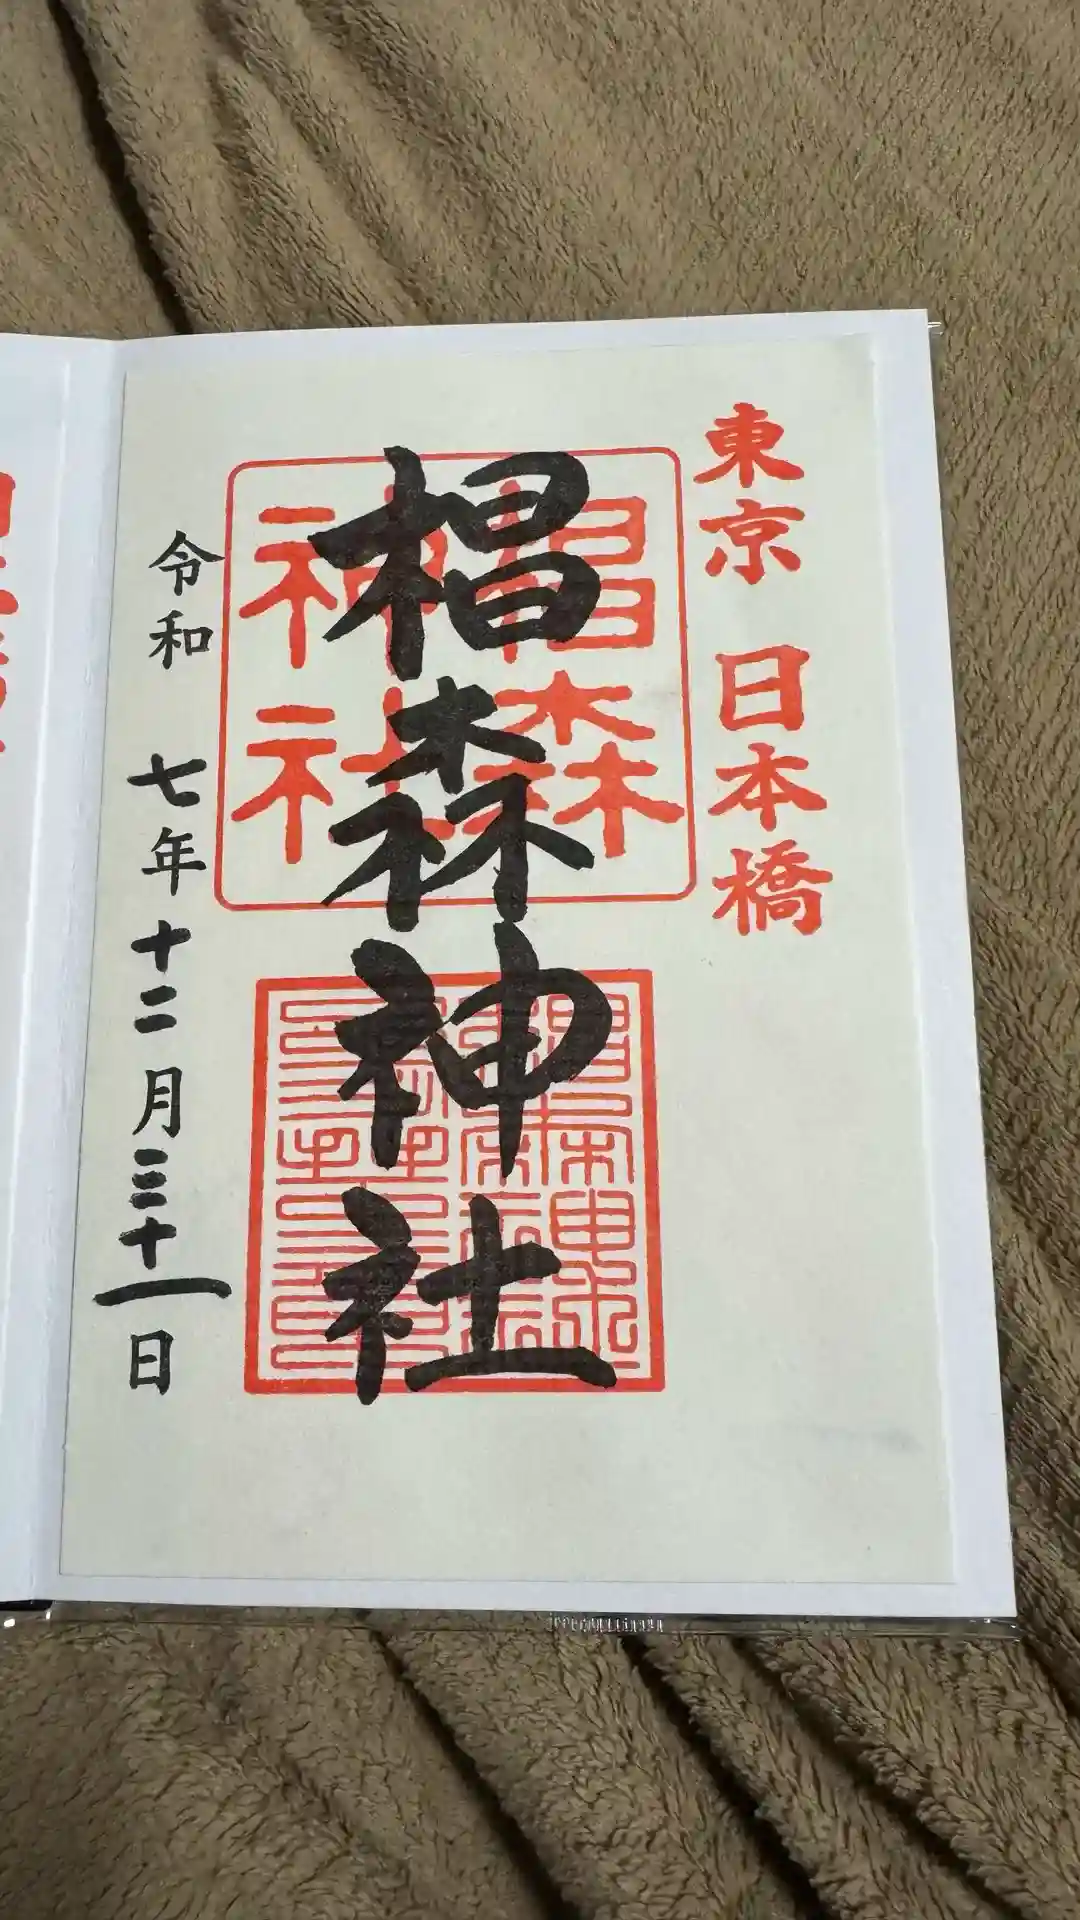 東京 日本橋
椙森神社
椙森
神社
令和 七年十二月三十一日